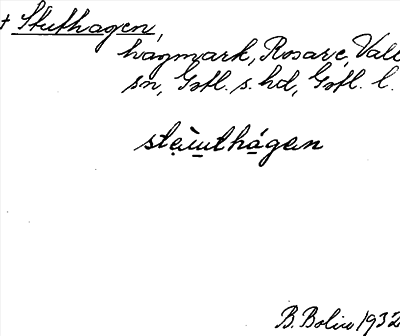 + Stuthagen,
hagmark, Rosarve, Vall
sn, Gotl. s. hd, Gotl. l.
stèu̲thá̲gen
B. Bolin 1932